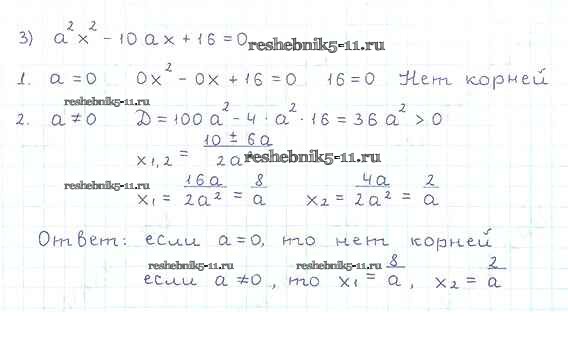 3) a²x² - 10ax + 16 = 0 reshebnik5-11.ru
1. a = 0 0x² - 0x + 16 = 0 16 = 0 Нет корней
reshebnik5-11.ru
2. a ≠ 0 D = 100a² - 4 · a² · 16 = 36a² > 0
x₁,₂ = (10 ± 6a)/(2a²) reshebnik5-11.ru
reshebnik5-11.ru x₁ = 16a/2a² = 8/a x₂ = 4a/2a² = 2/a
Ответ: если a = 0, то нет корней
reshebnik5-11.ru reshebnik5-11.ru
если a ≠ 0, то x₁ = 8/a, x₂ = 2/a